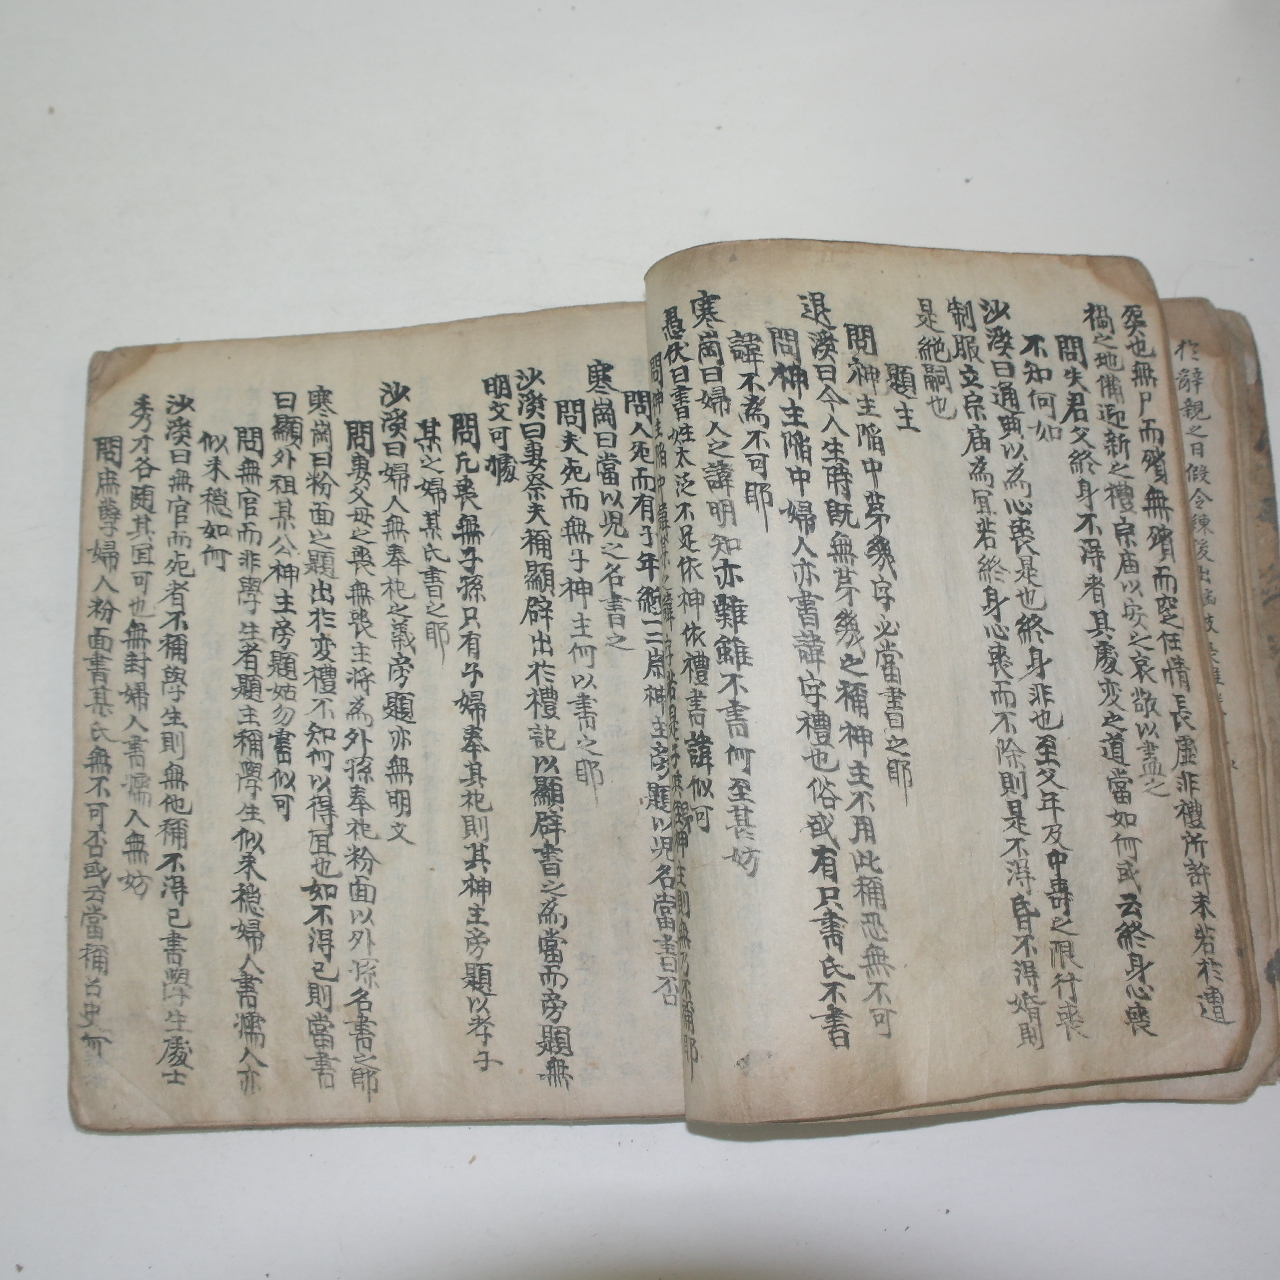 於辭親之日假令練後出
矣也無尸而殯無殯而窆任情長虛非禮所許未若於遭
禍之地備迎新之禮宗庙以安之哀敬以盡之
問失君父終身不得者其處变之道當如何或云終身心喪
不知何如
沙溪曰通典以為心喪是也終身非也至父年及中壽之限行喪
制服立宗庙為冥若終身心喪而不除則是不得昏不得婚則
是絶嗣也
題主
問神主陷中苐幾字必當書之耶
退溪曰今人生時既無苐幾之稱神主不用此稱恐無不可
問神主陷中婦人亦書諱字禮也俗或有只書氏不書
諱不為不可耶
寒崗曰婦人之諱明知亦難雖不書何至甚妨
愚伏曰書姓太泛不足依神依禮書諱似可
問人死而有子年纔一二歲神主旁題以児名當書否
寒崗曰當以児之名書之
問夫死而無子神主何以書之耶
沙溪曰妻祭夫稱顯辟出於禮記以顯辟書之為當而旁題無
明文可據
問凡喪無子孫只有子婦奉其祀則其神主旁題以孝子
某之婦某氏書之耶
沙溪曰婦人無奉祀之義旁題亦無明文
問妻父母之喪無喪主將為外孫奉祀粉面以外孫名書之耶
寒崗曰粉面之題出於变禮不知何以得宜也如不得已則當書
曰顯外祖某公神主旁題姑勿書似可
問無官而非學生者題主稱學生似未穩婦人書孺人亦
似未穩如何
沙溪曰無官而死者不稱學生則無他稱不得已書學生處士
秀才各随其宜可也無封婦人書孺人無妨
問庶孽婦人粉面書某氏無不可否或云當稱召史何